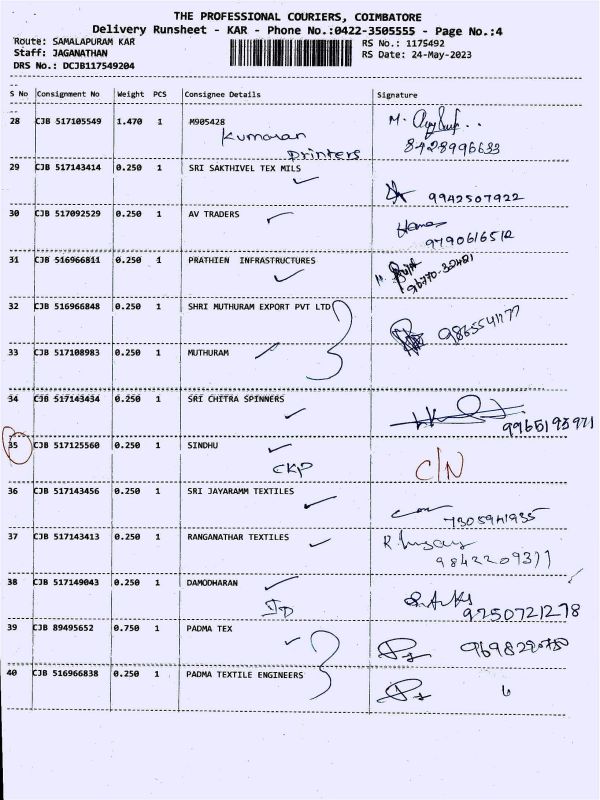 THE PROFESSIONAL COURIERS, COIMBATORE
Delivery Runsheet - KAR - Phone No.:0422-3505555 - Page No.:4
Route: SAMALAPURAM KAR
RS No.: 1175492
Staff: JAGANATHAN
RS Date: 24-May-2023
DRS No.: DCJB117549204
S No Consignment No Weight PCS Consignee Details Signature
28 CJB 517105549 1.470 1 M905428
Kumaran
Printers
8428996633
29 CJB 517143414 0.250 1 SRI SAKTHIVEL TEX MILS
9942507922
30 CJB 517092529 0.250 1 AV TRADERS
9790616512
31 CJB 516966811 0.250 1 PRATHIEN INFRASTRUCTURES
32 CJB 516966848 0.250 1 SHRI MUTHURAM EXPORT PVT LTD
33 CJB 517108983 0.250 1 MUTHURAM
34 CJB 517143434 0.250 1 SRI CHITRA SPINNERS
9965195971
35 CJB 517125560 0.250 1 SINDHU
CKP
C/N
36 CJB 517143456 0.250 1 SRI JAYARAMM TEXTILES
7305941935
37 CJB 517143413 0.250 1 RANGANATHAR TEXTILES
9842209311
38 CJB 517149043 0.250 1 DAMODHARAN
9250721278
39 CJB 89495652 0.750 1 PADMA TEX
40 CJB 516966838 0.250 1 PADMA TEXTILE ENGINEERS